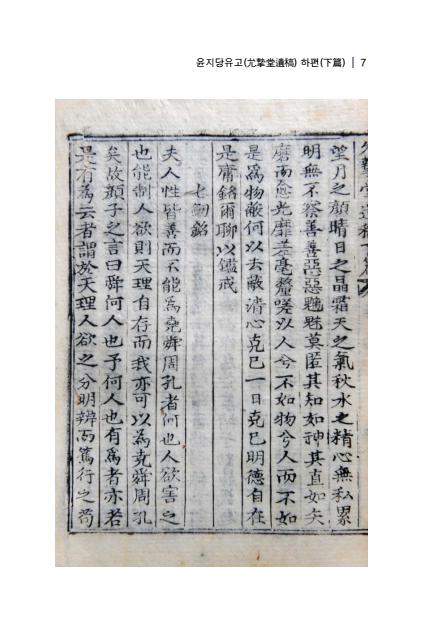 윤지당유고(尤摯堂遺稿) 하편(下篇) | 7
望月之顔晴日之晶霜天之氣秋水之精心無私累
明無不察善善惡惡魑魅莫匿其知如神其直如矢
磨而愈光靡差毫釐嗟以人兮不如物兮人而不如
是爲物蔽何以去蔽清心克己一日克己明德自在
是庸銘爾聊以鑑戒
匕劒銘
夫人性皆善而不能爲堯舜周孔者何也人欲害之
也能制人欲則天理自存而我亦可以爲堯舜周孔
矣故顔子之言曰舜何人也予何人也有爲者亦若
是有爲云者謂於天理人欲之分明辨而篤行之苟